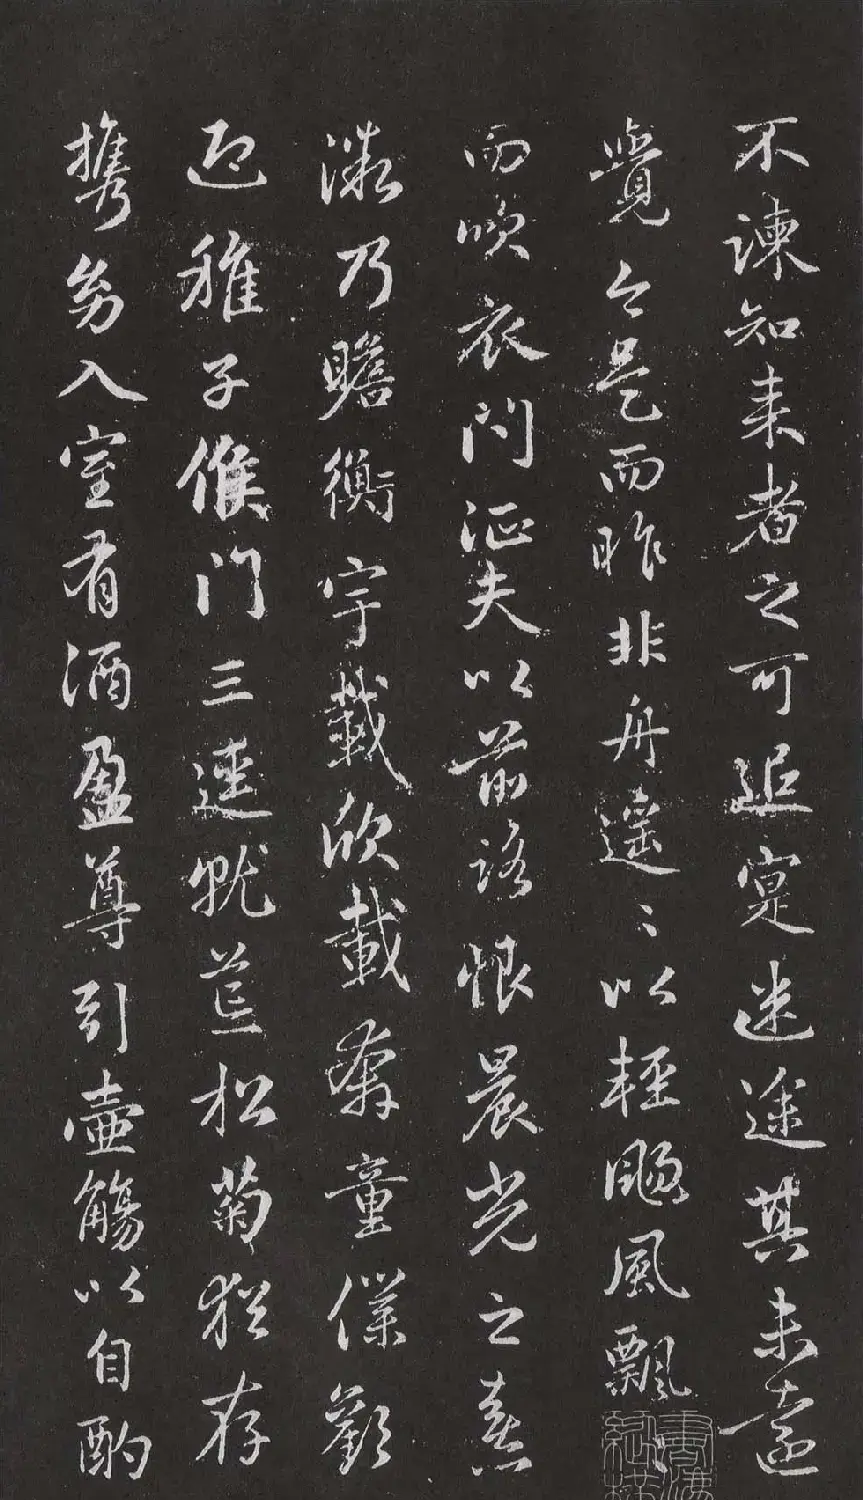 不諫知来者之可追寔迷途其未遠
覺今是而昨非舟遥〻以輕颺風飄
而吹衣問征夫以前路恨晨光之熹
微乃瞻衡宇載欣載奔童僕歡
迎稚子候門三逕就荒松菊猶存
携幼入室有酒盈尊引壷觴以自酌